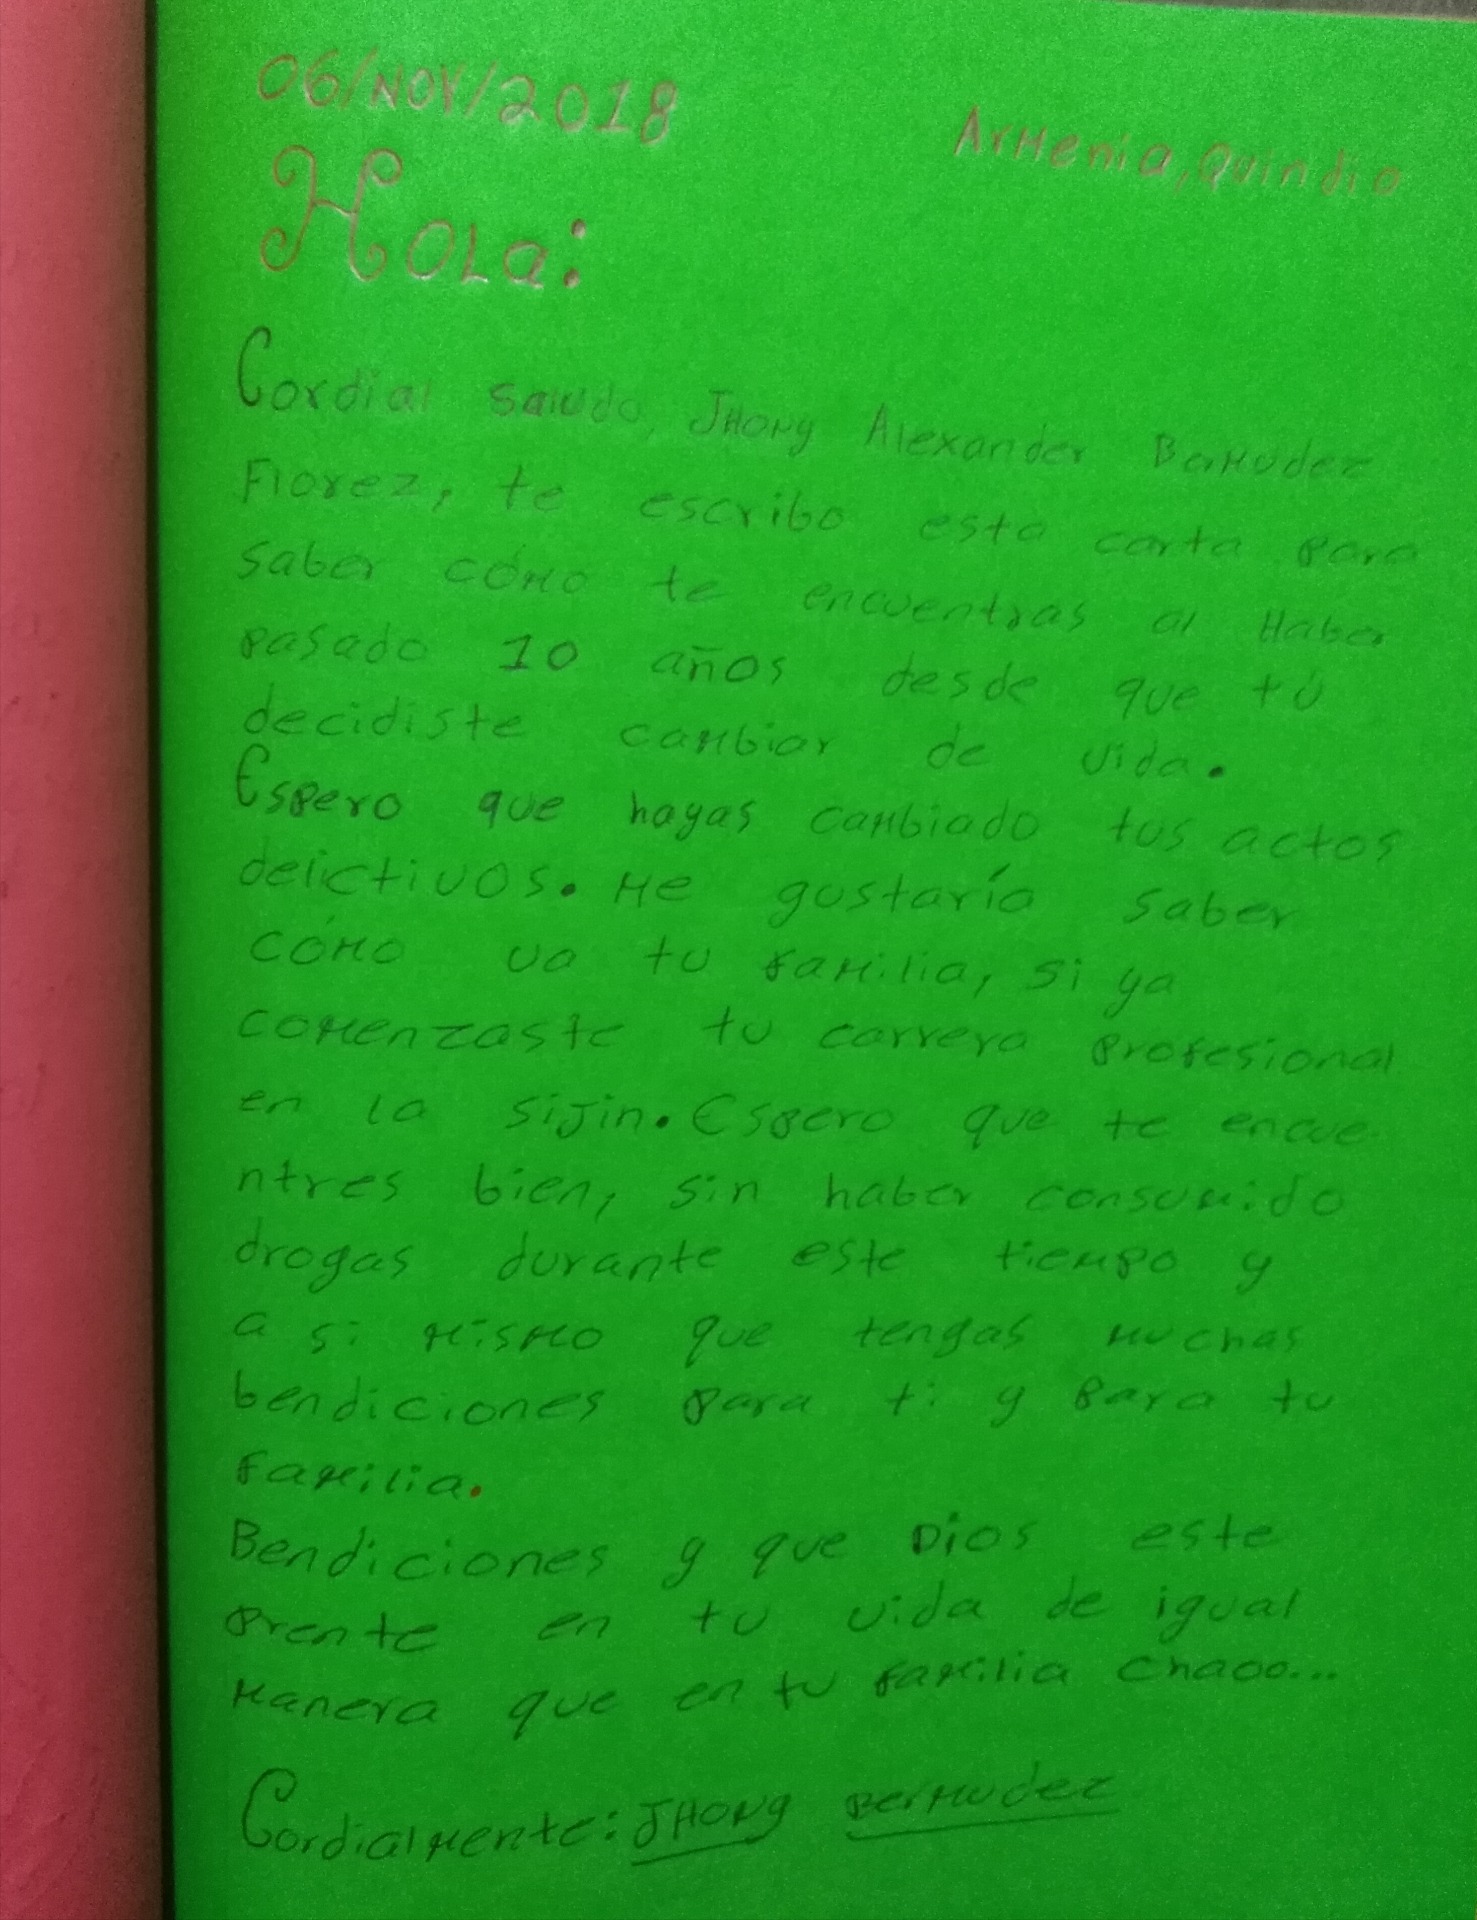 06/NOV/2018
Armenia, Quindio
Hola:
Cordial saludo, Jhony Alexander Bermudez
Florez, te escribo esta carta para
saber cómo te encuentras al haber
pasado 10 años desde que tú
decidiste cambiar de vida.
Espero que hayas cambiado tus actos
delictivos. Me gustaría saber
cómo va tu familia, si ya
comenzaste tu carrera profesional
en la sijin. Espero que te encue
ntres bien, sin haber consumido
drogas durante este tiempo y
a si mismo que tengas muchas
bendiciones para ti y para tu
familia.
Bendiciones y que Dios este
prente en tu vida de igual
manera que en tu familia chaoo...
Cordialmente: Jhony Bermudez